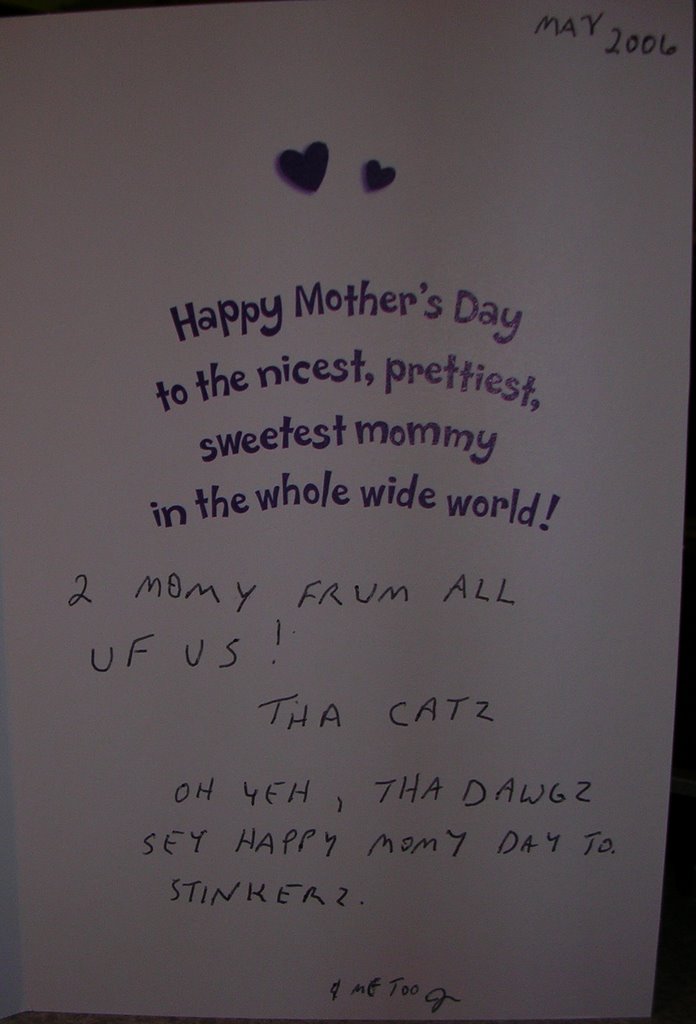 MAY 2006
Happy Mother's Day
to the nicest, prettiest,
sweetest mommy
in the whole wide world!
2 MOMY FRUM ALL
UF US!
THA CATZ
OH YEH, THA DAWGZ
SEY HAPPY MOMY DAY TO.
STINKERZ.
& ME TOO